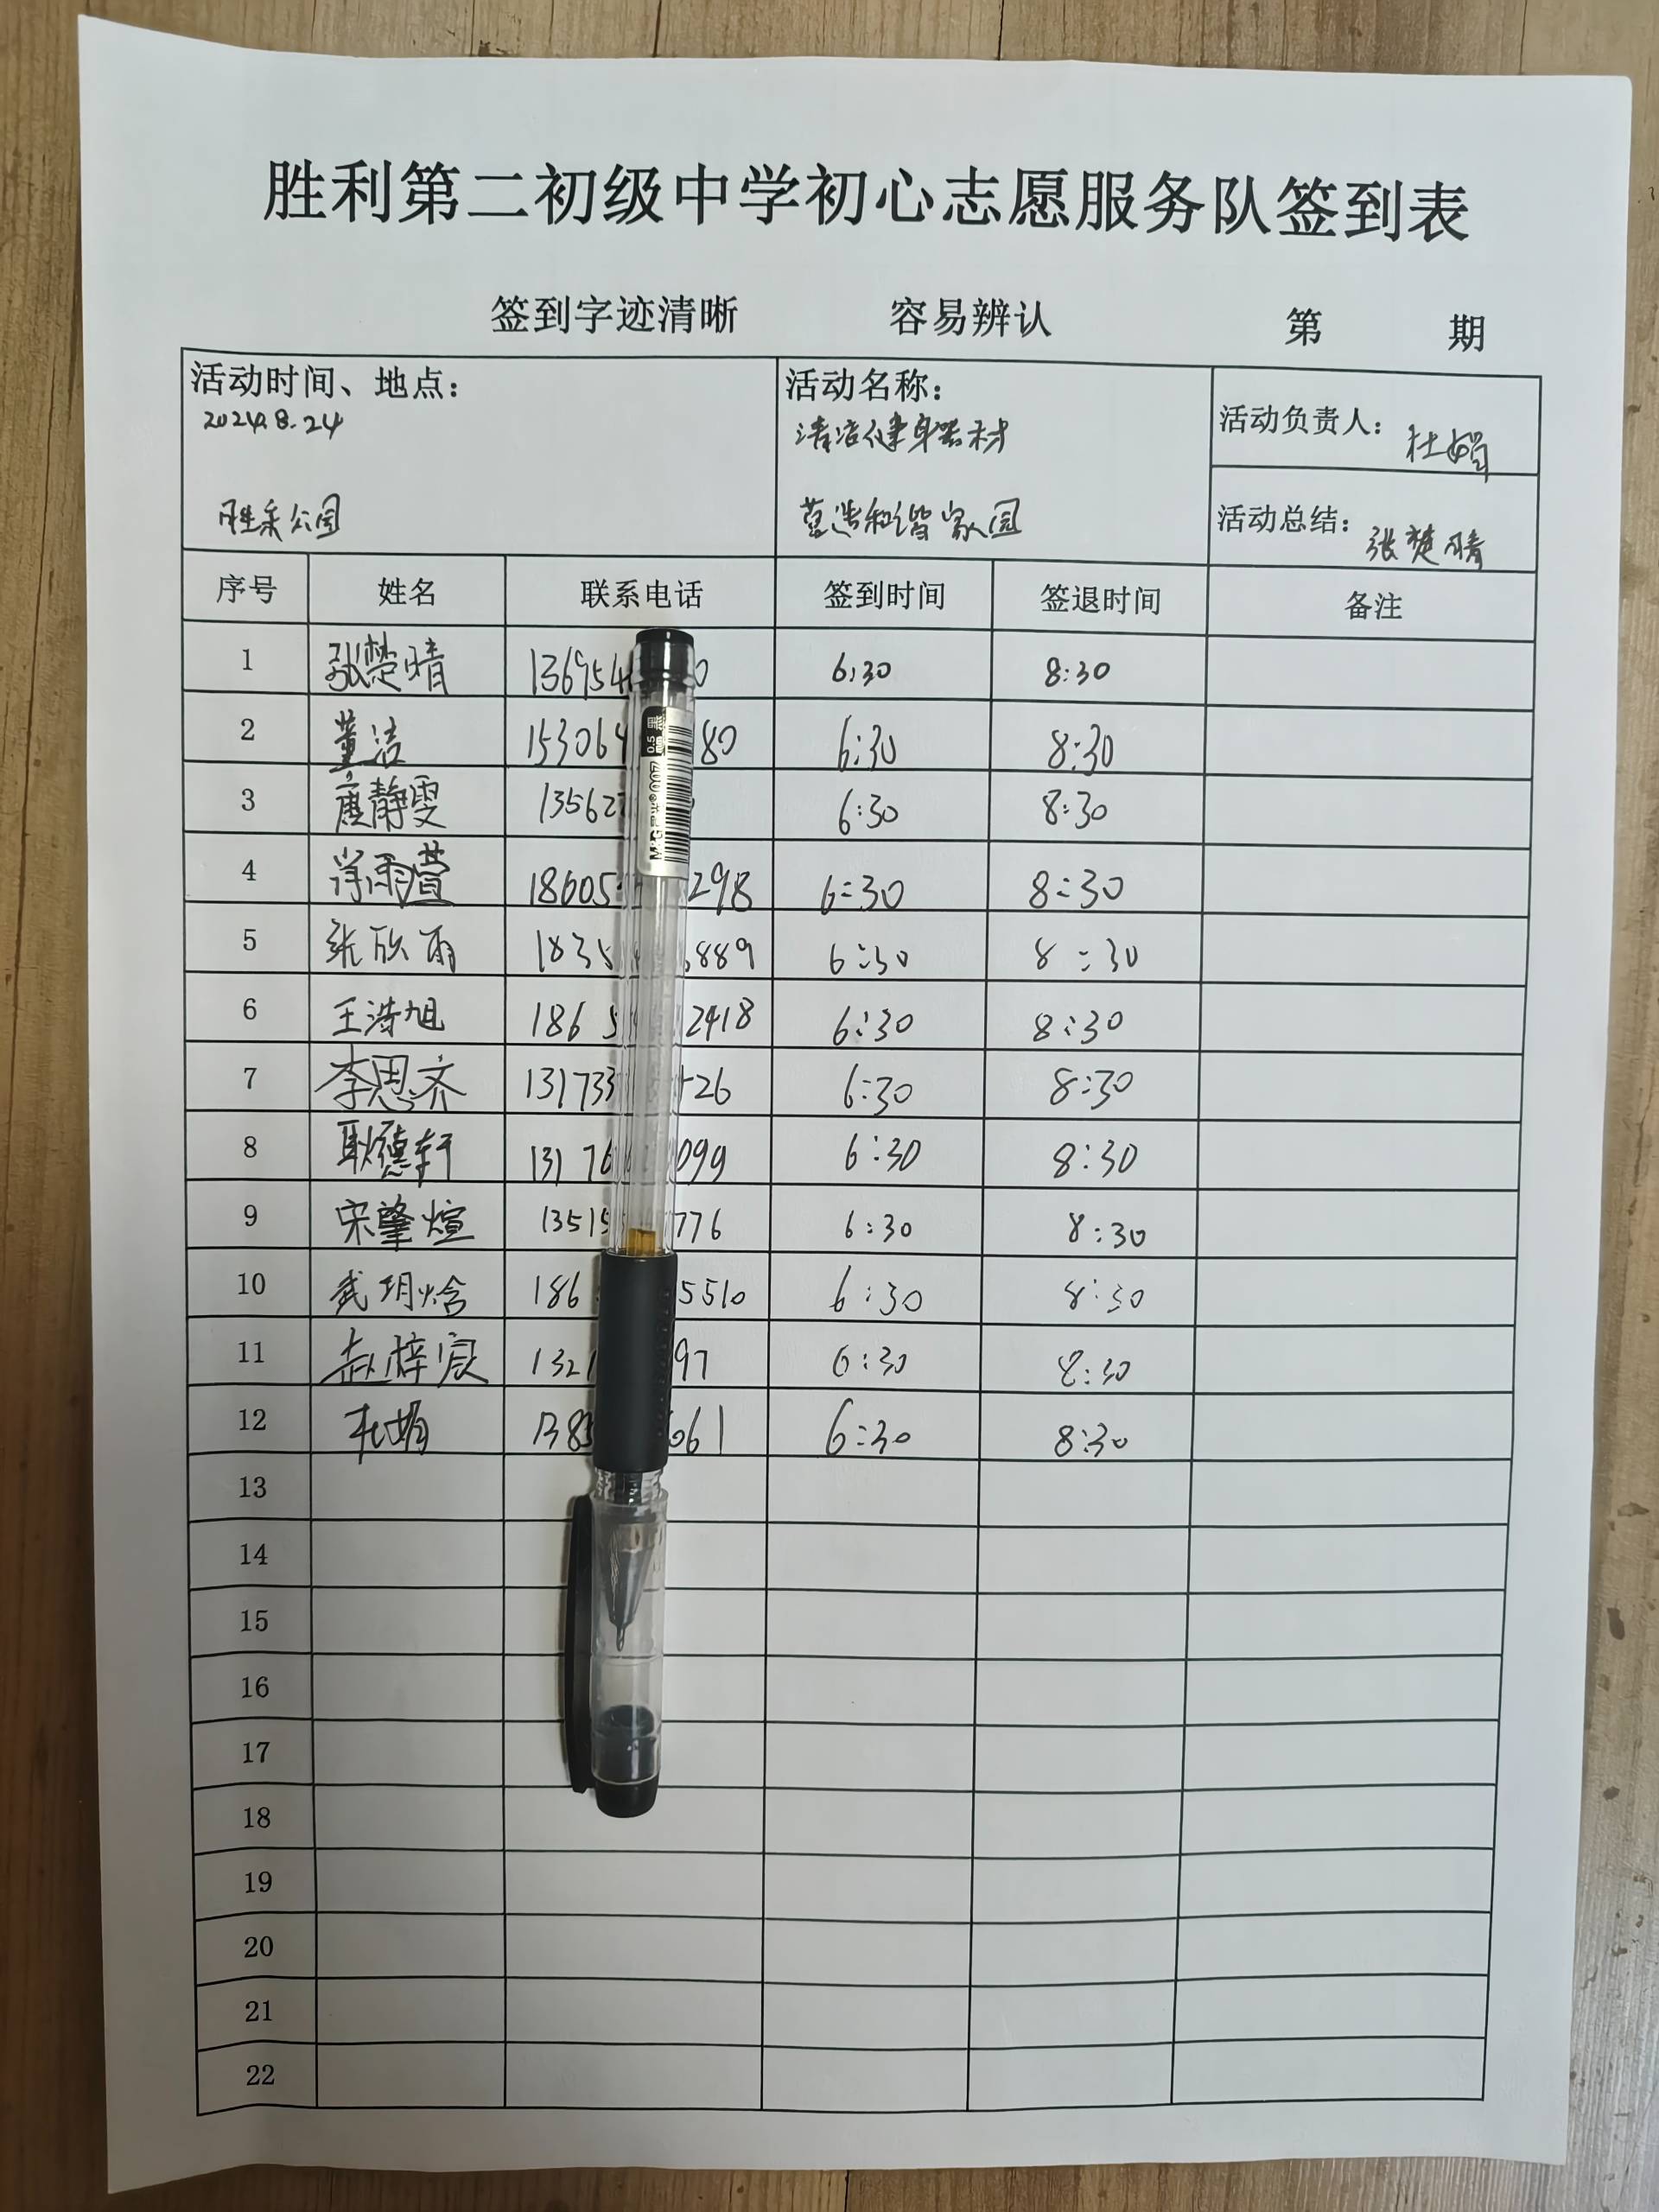 胜利第二初级中学初心志愿服务队签到表
签到字迹清晰 容易辨认 第 期
活动时间、地点： 活动名称： 活动负责人：杜娟
2024.8.24 清洁健身器材
胜采公园 营造和谐家园 活动总结：张楚晴
序号 姓名 联系电话 签到时间 签退时间 备注
1 张楚晴 6:30 8:30
2 董洁 80 6:30 8:30
3 唐静雯 6:30 8:30
4 肖雨萱 298 6:30 8:30
5 张欣雨 889 6:30 8:30
6 王浩旭 2418 6:30 8:30
7 李思齐 26 6:30 8:30
8 耿德轩 099 6:30 8:30
9 宋肇煊 776 6:30 8:30
10 武玥焓 5510 6:30 8:30
11 赵梓宸 97 6:30 8:30
12 杜娟 061 6:30 8:30
13
14
15
16
17
18
19
20
21
22
M&G 0.5 黑